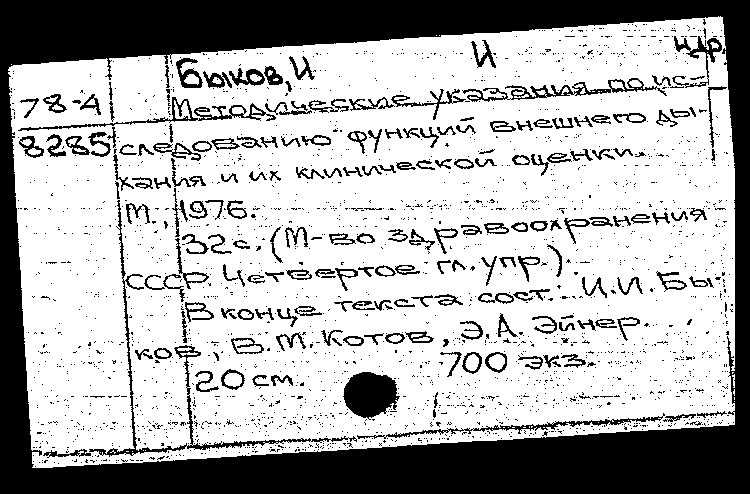 Быков, И И и др.
78-4 Методические указания по ис-
8285 следованию функций внешнего ды-
хания и их клинической оценки.
М., 1976.
32с. (М-во здравоохранения
СССР. Четвертое гл. упр.).
В конце текста сост.: И.И. Бы-
ков, В.М. Котов, Э.А. Эйнер.
20 см. 700 экз.